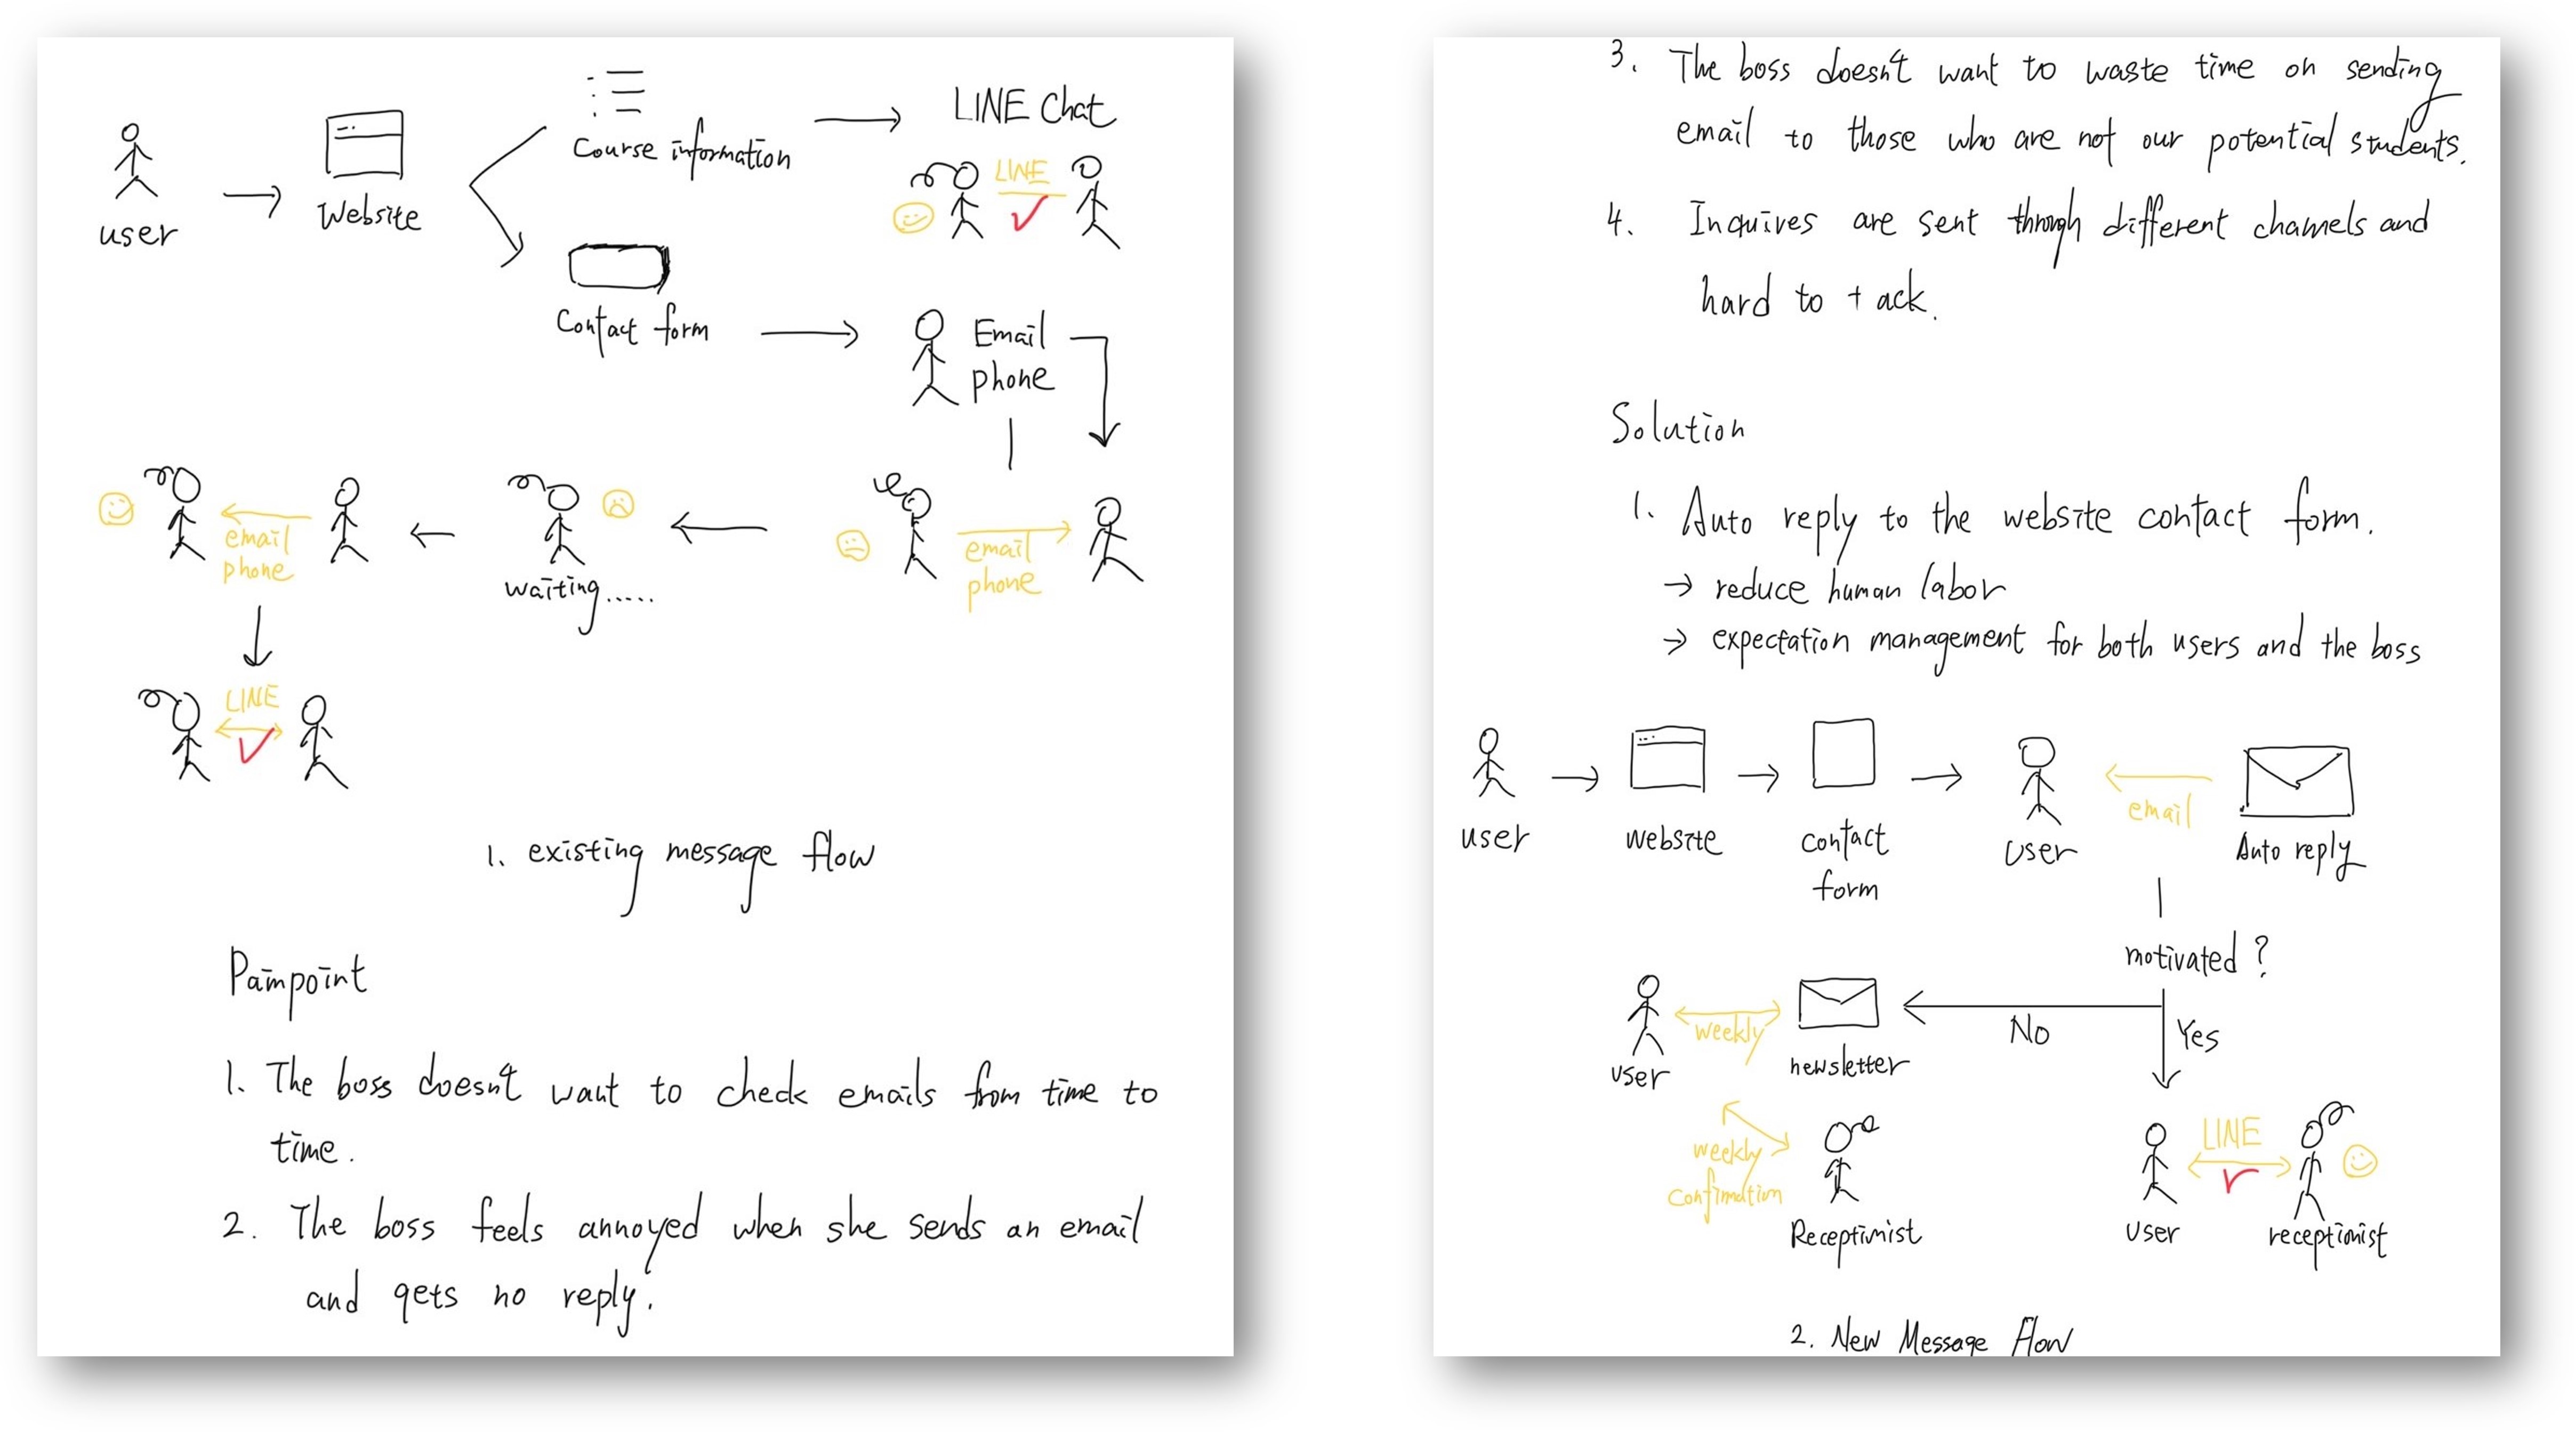 user
Website
Course information
LINE Chat
LINE
Contact form
Email
phone
email
phone
waiting.....
email
phone
LINE
1. existing message flow
Painpoint
1. The boss doesn't want to check emails from time to
time.
2. The boss feels annoyed when she sends an email
and gets no reply.
3. The boss doesn't want to waste time on sending
email to those who are not our potential students.
4. Inquires are sent through different channels and
hard to t ack.
Solution
1. Auto reply to the website contact form.
→ reduce human labor
→ expectation management for both users and the boss
user
website
contact
form
user
email
Auto reply
motivated?
No
Yes
user
weekly
newsletter
weekly
confirmation
Receptionist
LINE
user
receptionist
2. New Message Flow